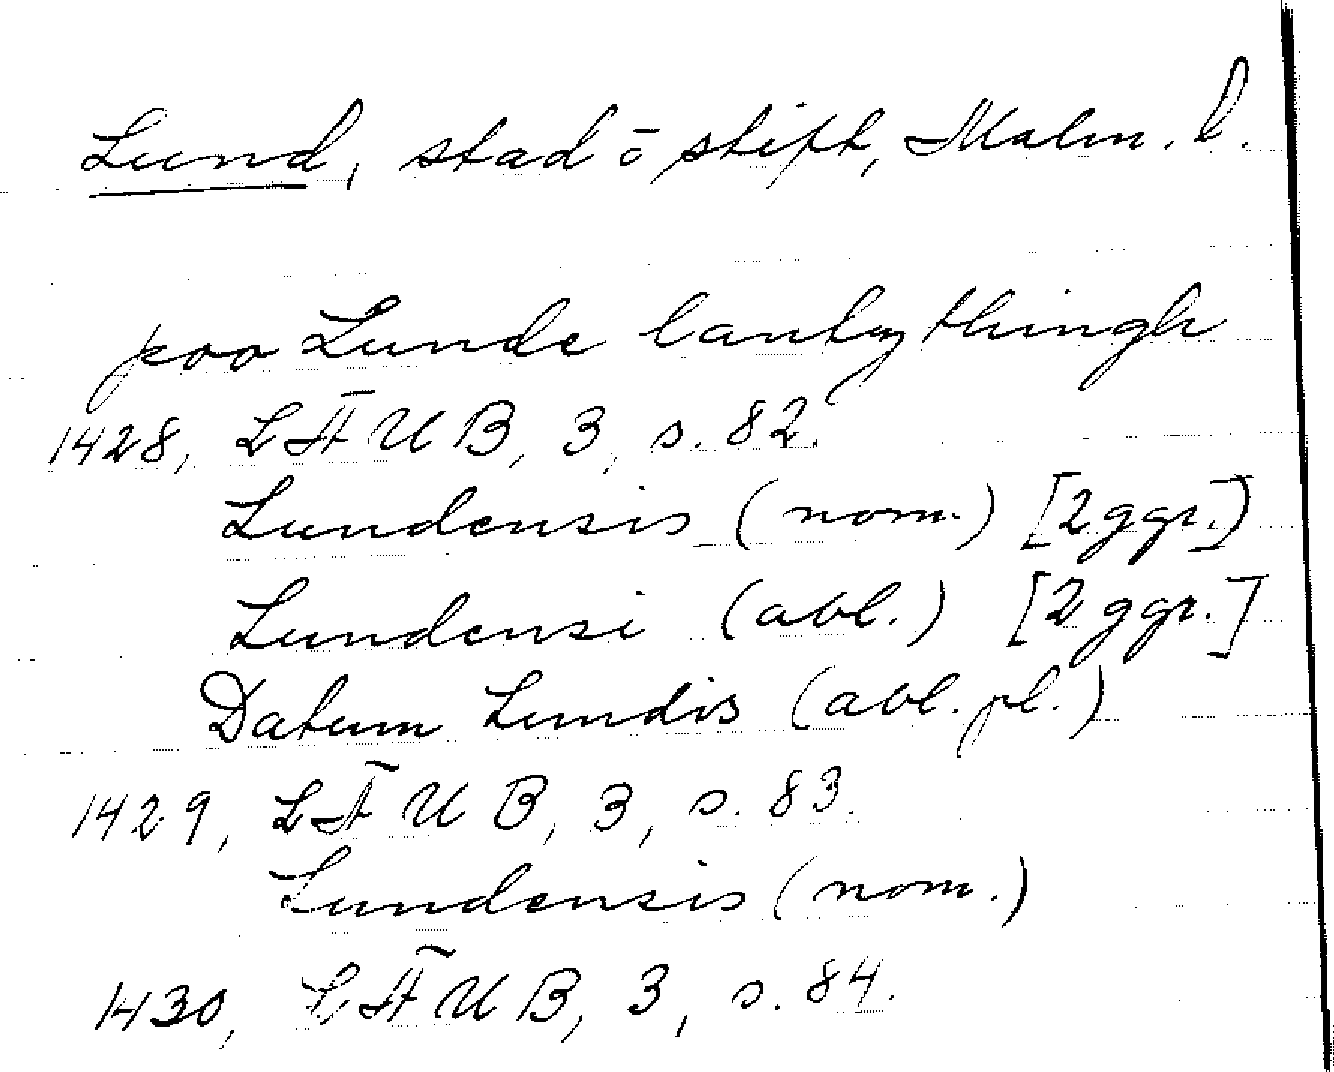 Lund, stad ō stift, Malm. l.
poo Lunde landzthingh
1428, LÄUB, 3, s. 82.
Lundensis (nom.) [2 ggr.]
Lundensi (abl.) [2 ggr.]
Datum Lundis (abl. pl.)
1429, LÄUB, 3, s. 83.
Lundensis (nom.)
1430, LÄUB, 3, s. 84.